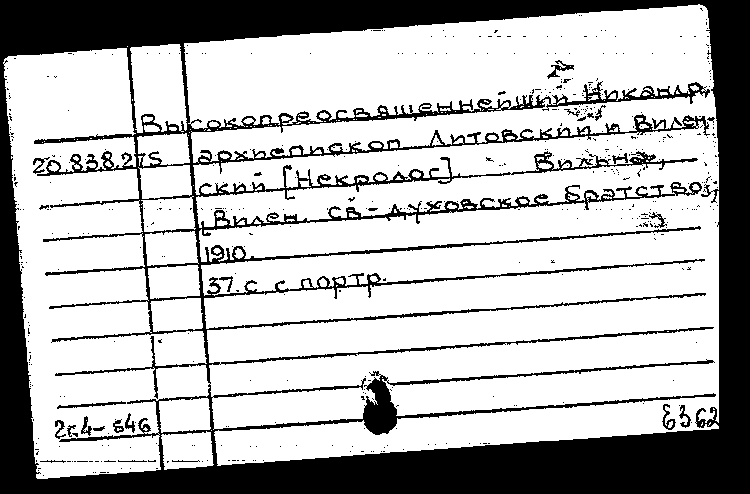 Высокопреосвященнейший Никандр,
20.838.275 архиепископ Литовский и Вилен-
ский [Некролог]. Вильна,
[Вилен. св-духовское братство],
1910.
37.с с портр.
254-546 Е362